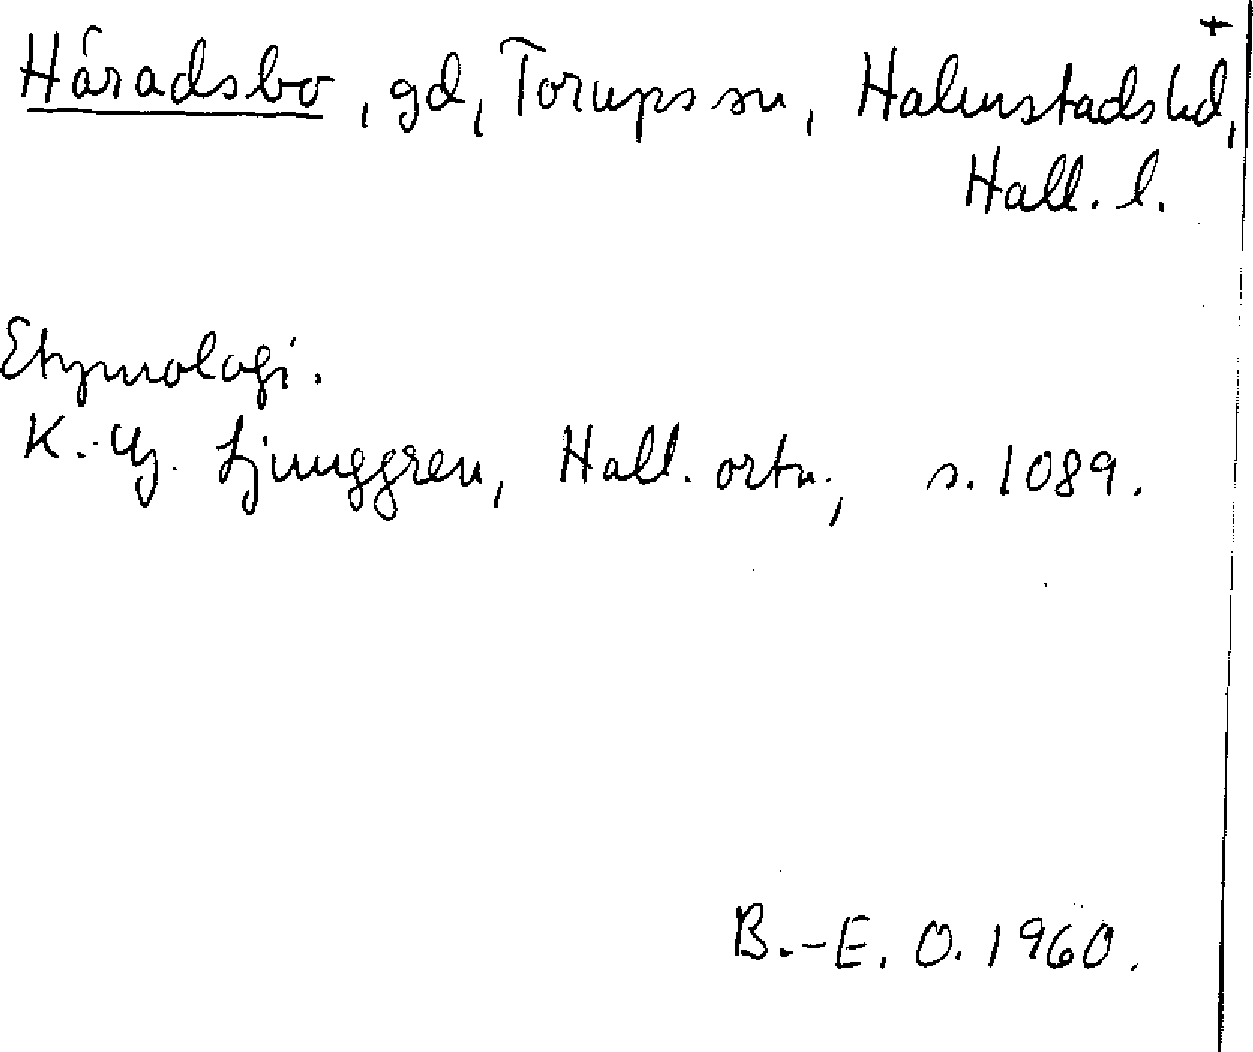 +
Håradsbo, gd, Torups sn, Halmstads hd,
Hall. l.
Etymologi.
K.-G. Ljunggren, Hall. ortn., s. 1089.
B.-E. O. 1960.